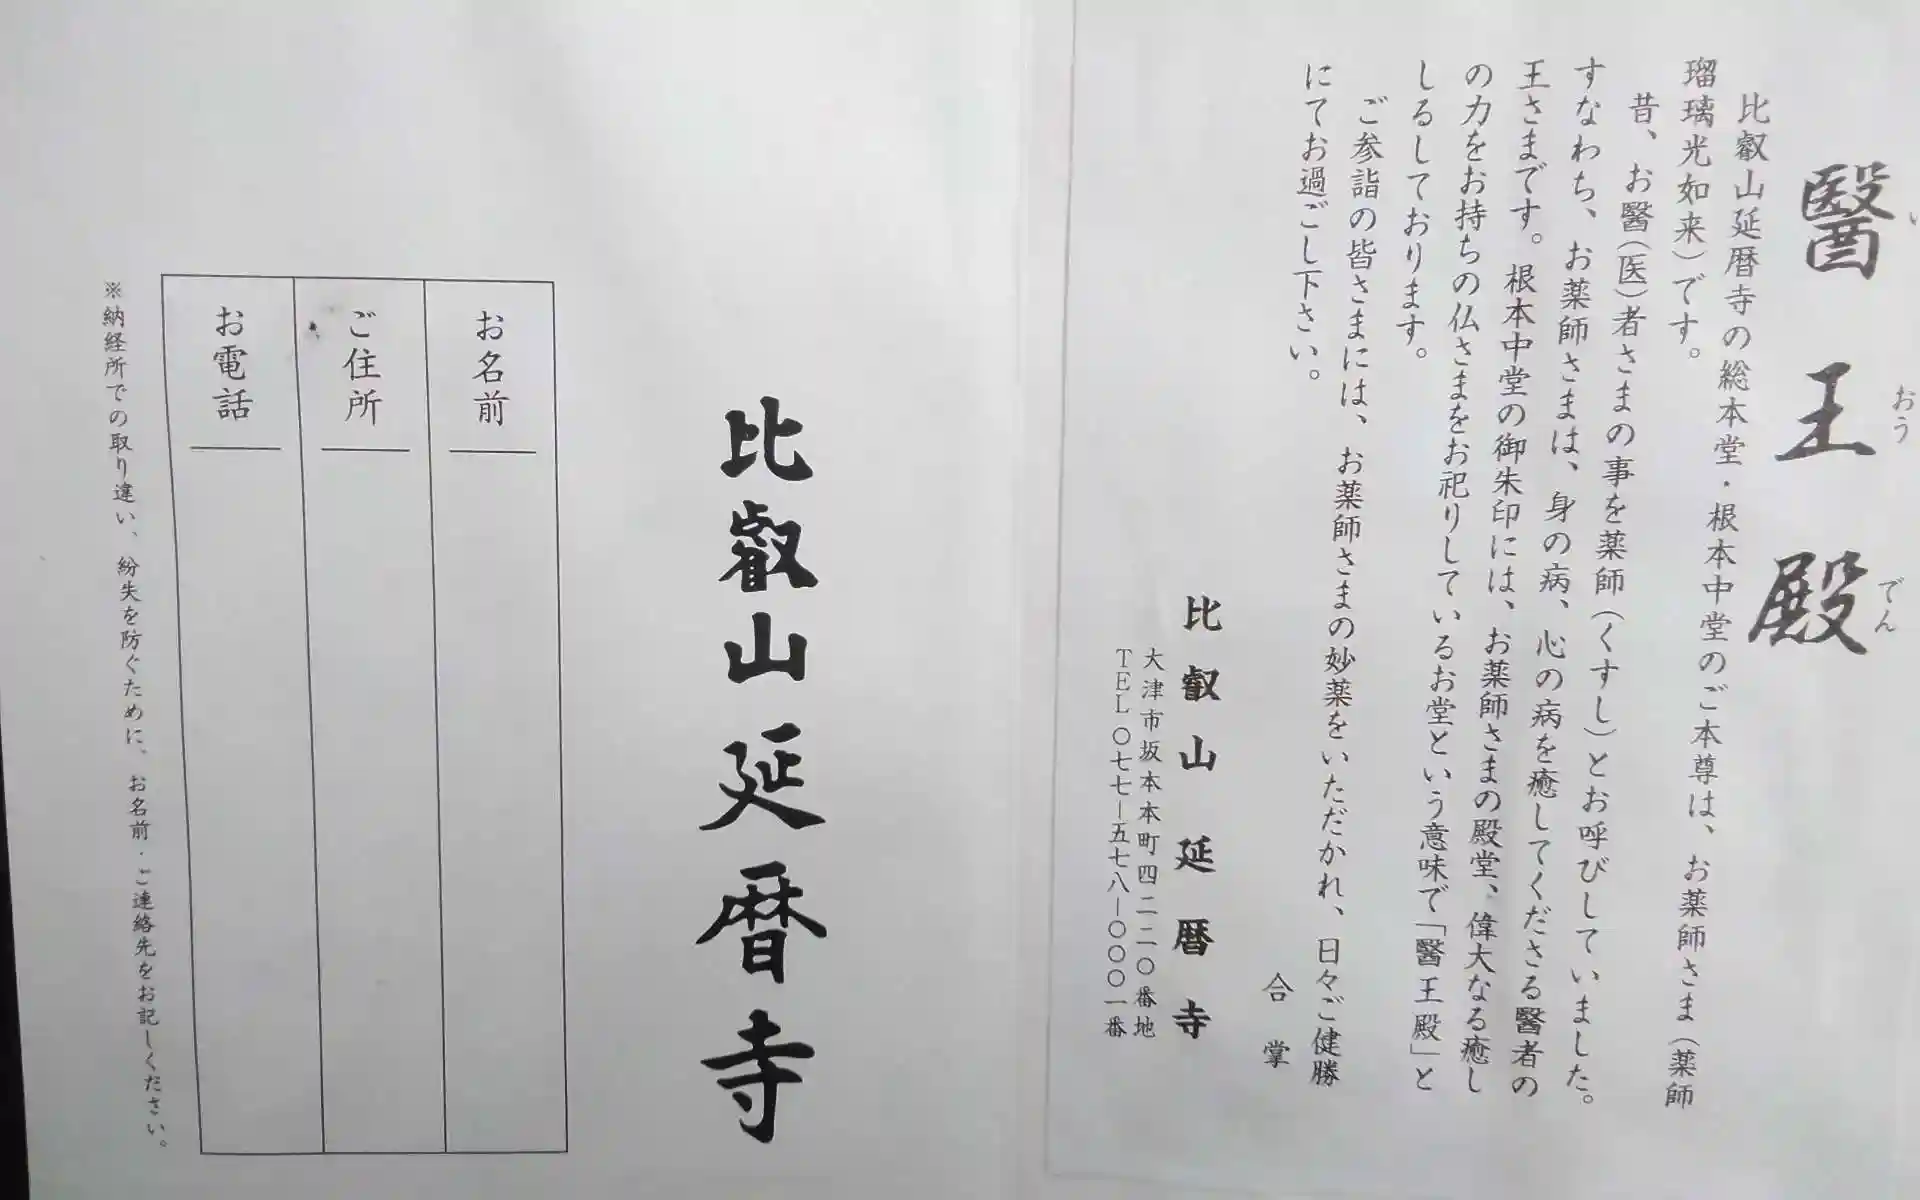 醫王殿
い おう でん
比叡山延暦寺の総本堂・根本中堂のご本尊は、お薬師さま(薬師
瑠璃光如来)です。
昔、お醫(医)者さまの事を薬師(くすし)とお呼びしていました。
すなわち、お薬師さまは、身の病、心の病を癒してくださる醫者の
王さまです。根本中堂の御朱印には、お薬師さまの殿堂、偉大なる癒し
の力をお持ちの仏さまをお祀りしているお堂という意味で「醫王殿」と
しるしております。
ご参詣の皆さまには、お薬師さまの妙薬をいただかれ、日々ご健勝
にてお過ごし下さい。
合掌
比叡山延暦寺
大津市坂本本町四二二〇番地
TEL〇七七-五七八-〇〇〇一番
比叡山延暦寺
お名前
ご住所
お電話
※納経所での取り違い、紛失を防ぐために、お名前・ご連絡先をお記しください。